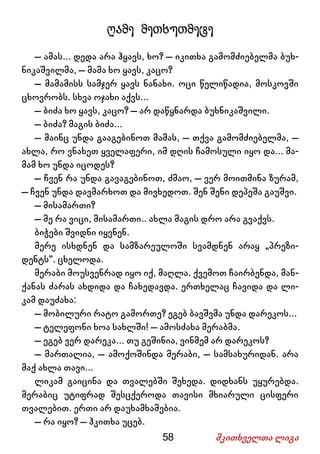 ღამე მეთხუთმეტე
— ამას... დედა არა ჰყავს, ხო? — იკითხა გამომძიებელმა ბუხ-
ნიკაშვილმა, — მამა ხო ყავს, კაცო?
— მამამისს სამჯერ ყავს ნანახი. ოცი წელიწადია, მოსკოვში
ცხოვრობს. სხვა ოჯახი აქვს...
— ბიძა ხო ყავს, კაცო? — არ დაწყნარდა ბუხნიკაშვილი.
— ბიძა? მაგის ბიძა...
— მაინც უნდა გააგებინოთ მამას, — თქვა გამომძიებელმა, —
ახლა, რო ვნახეთ ყველაფერი, იმ დღის ჩამოსული იყო და... მა-
მამ ხო უნდა იცოდეს?
— ჩვენ რა უნდა გავაგებინოთ, ძმაო, — ვერ მოითმინა ზურამ,
— ჩვენ უნდა დავმარხოთ და მივხედოთ. შენ შენი დეპეშა გაუშვი.
— მისამართი?
— მე რა ვიცი, მისამართი.. ახლა მაგის დრო არა გვაქვს.
ბიჭები შვიდნი იყვნენ.
მერე ისხდნენ და სამზარეულოში სვამდნენ არაყ „პრეზი-
დენტს“. ცხელოდა.
მერაბი მოუსვენრად იყო იქ, მაღლა. ქვემოთ ჩაირბენდა, მან-
ქანას ძარას ახდიდა და ჩახედავდა. ერთხელაც ჩავიდა და ლი-
კამ დაუძახა:
— მობილური რატო გამორთე? ეგებ ბავშვმა უნდა დარეკოს...
— ტელეფონი ხოა სახლში! — ამოსძახა მერაბმა.
— ეგებ ვერ დარეკა... თუ გეშინია, ვინმემ არ დარეკოს?
— მართალია, — ამოქოშინდა მერაბი, — სამსახურიდან. არა
მაქ ახლა თავი...
ლიკამ გაიცინა და თვალებში შეხედა. დიდხანს უყურებდა.
მერაბიც უტიფრად შესცქეროდა თავისი მხიარული ცისფერი
თვალებით. ერთი არ დაუხამხამებია.
— რა იყო? — ჰკითხა უცებ.
58 მკითხველთა ლიგა